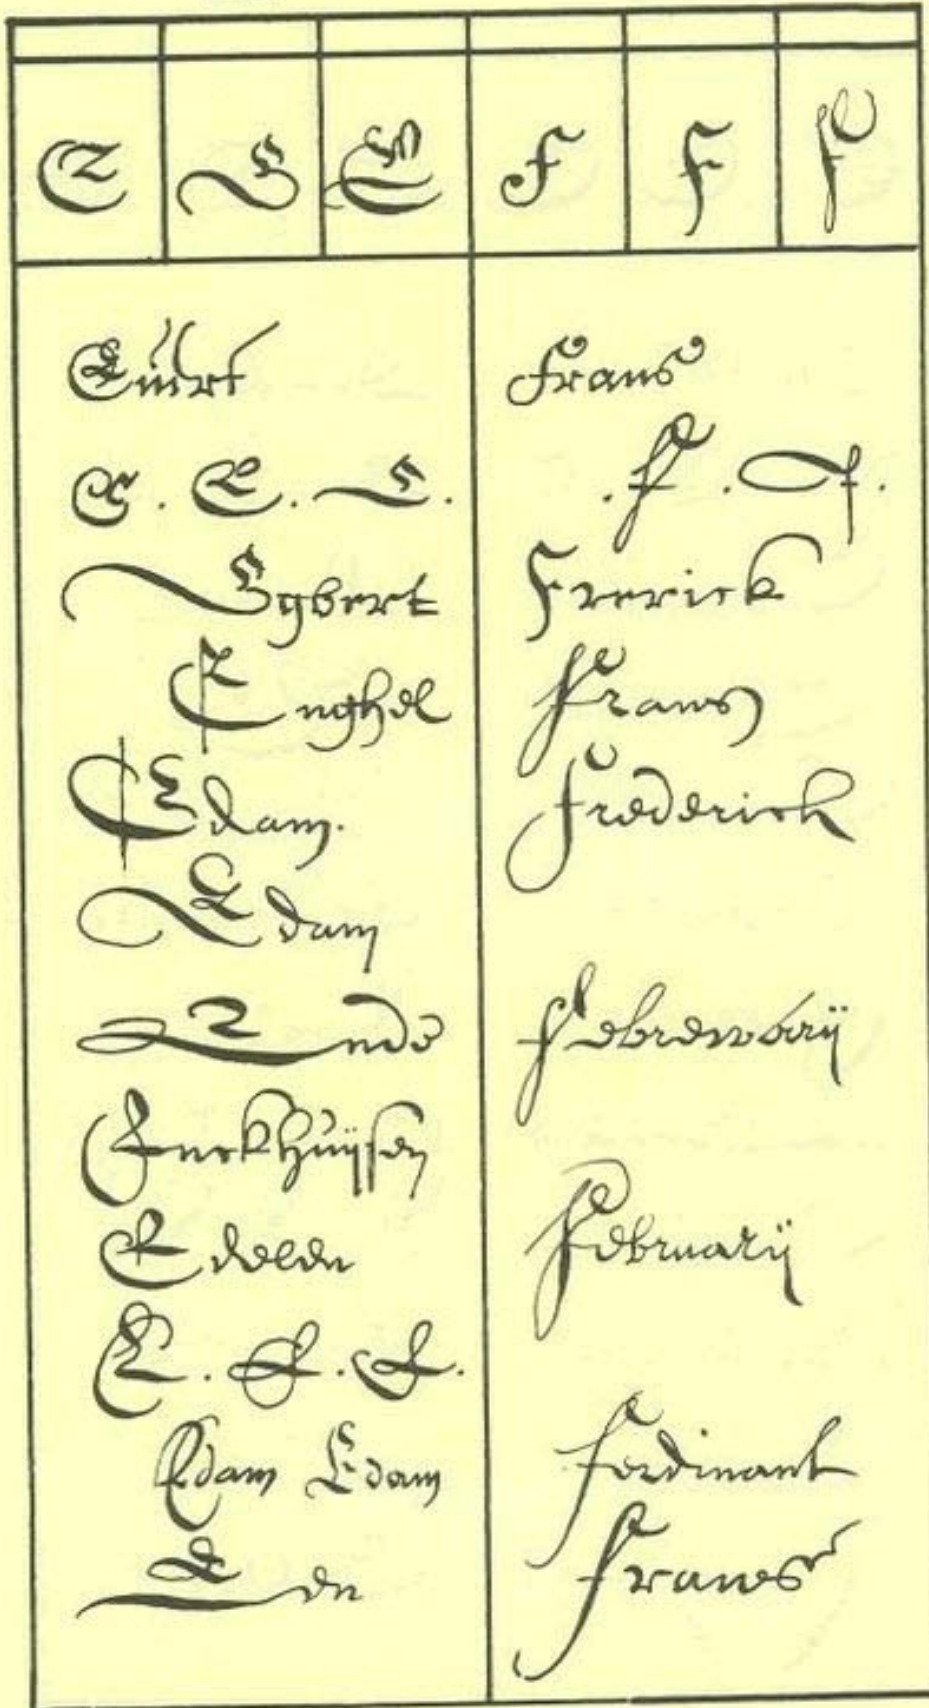 E E E F F F
Euert
E. E. E.
Egbert
Enghel
Edam.
Edam
Ende
Enckhuijsen
Edelen
E. E. E.
Edam Edam
En
Frans
. F . F.
Frerick
Frans
Frederick
Februarij
Ferdinant